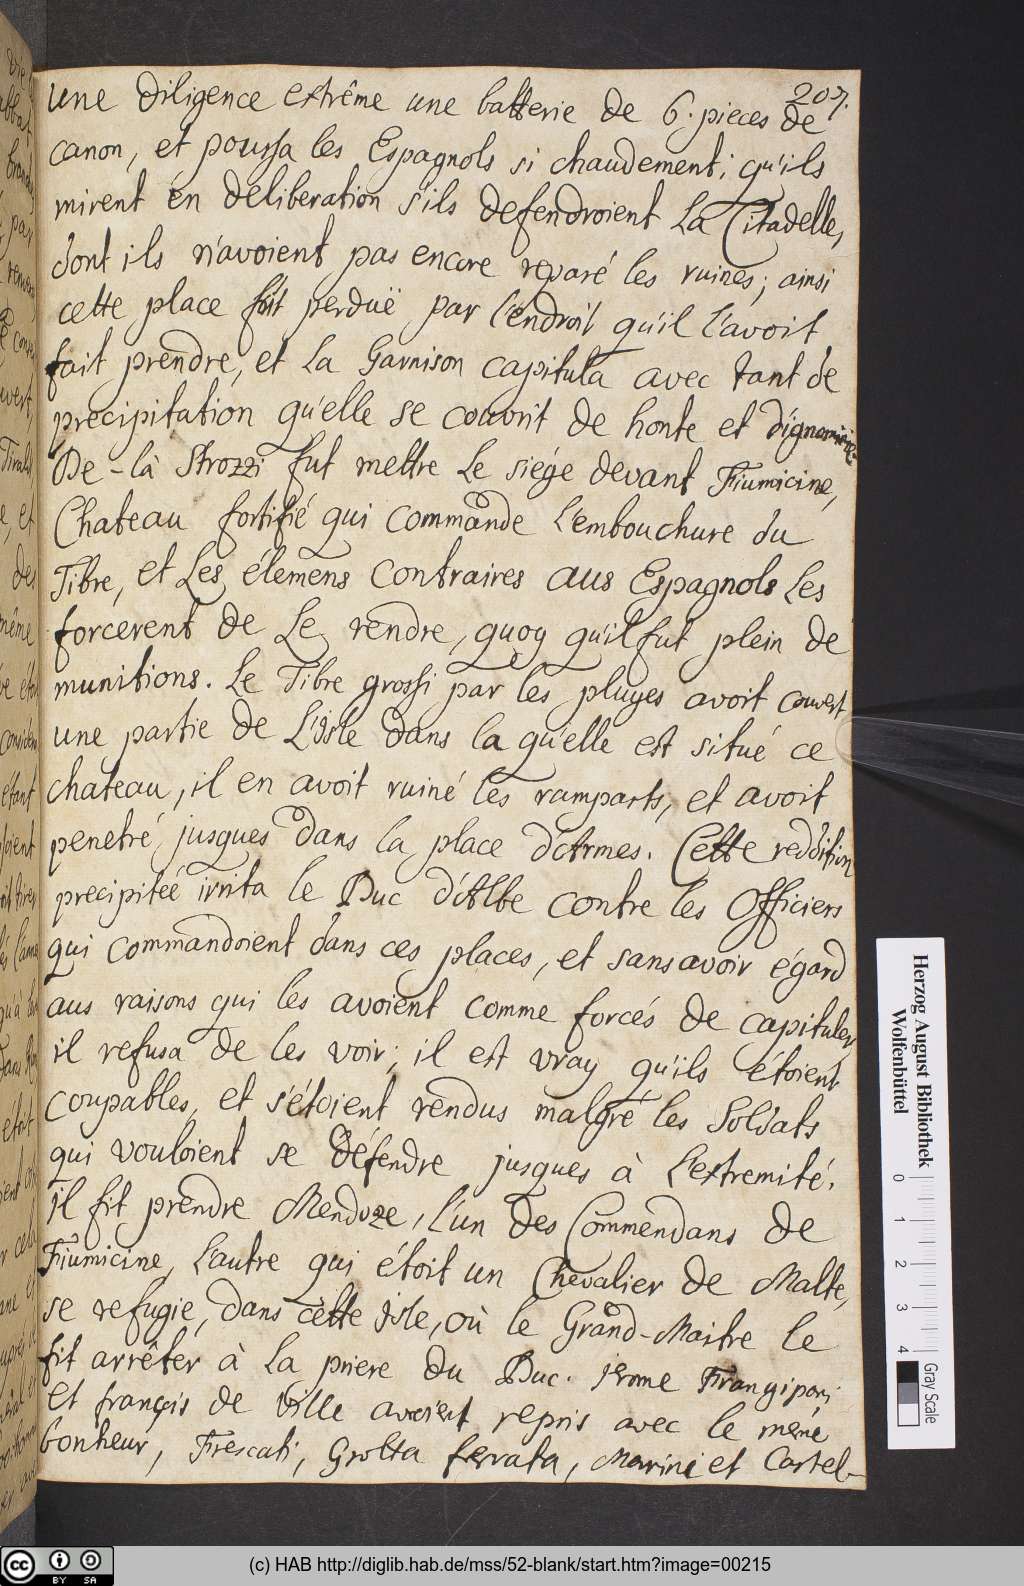 207.
une diligence extrême une batterie de 6. pieces de
canon, et poussa les Espagnols si chaudement; qu'ils
mirent en deliberation s'ils defendroient La Citadelle,
dont ils n'avoient pas encore reparé les ruines; ainsi
cette place fut perduë par l'endroit qu'il l'avoit
fait prendre, et La Garnison capitula avec tant de
precipitation qu'elle se couvrit de honte et d'ignominie.
De-là Strozzi fut mettre Le siége devant Fiumicine,
Chateau fortifié qui commande l'embouchure du
Tibre, et Les élemens contraires aus Espagnols Les
forcerent de Le rendre, quoy qu'il fut plein de
munitions. Le Tibre grossi par les pluyes avoit couvert
une partie de L'isle dans la qu'elle est situé ce
chateau, il en avoit ruiné les ramparts, et avoit
penetré jusques dans la place d'Armes. Cette reddition
precipiteé irrita le Duc d'Albe contre les Officiers
qui commandoient dans ces places, et sans avoir égard
aus raisons qui les avoient comme forcés de capituler
il refusa de les voir; il est vray qu'ils étoient
coupables, et s'étoient rendus malgré les Soldats
qui vouloient se défendre jusques à L'extremité.
Il fit prendre Mendoze, l'un des Commendans de
Fiumicine, L'autre qui étoit un Chevalier de Malte,
se refugie, dans cette isle, où le Grand-Maitre le
fit arrêter à La priere du Duc. jerome Frangipani
et françis de Ville avoient repris avec le même
bonheur, Frescati, Grotta ferrata, Marini et Castel-
Herzog August Bibliothek
Wolfenbüttel
0 1 2 3 4
Gray Scale
(c) HAB http://diglib.hab.de/mss/52-blank/start.htm?image=00215
cc BY SA